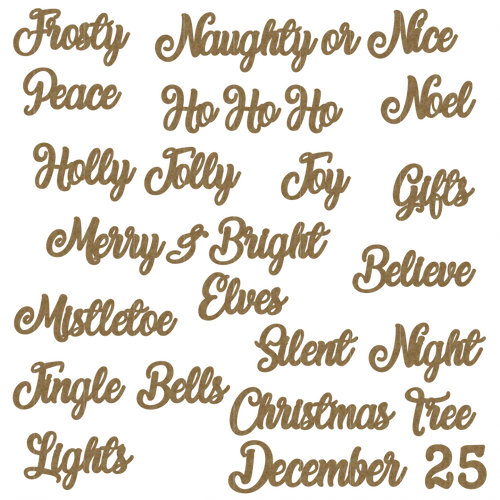 Frosty
Naughty or Nice
Peace
Ho Ho Ho
Noel
Holly Jolly
Joy
Gifts
Merry & Bright
Believe
Elves
Mistletoe
Silent Night
Jingle Bells
Christmas Tree
Lights
December 25